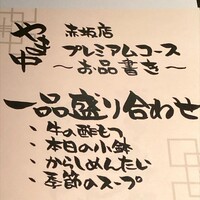 やま中
赤坂店
プレミアムコース
～お品書き～
一品盛り合わせ
・牛の酢もつ
・本日の小鉢
・からしめんたい
・季節のスープ